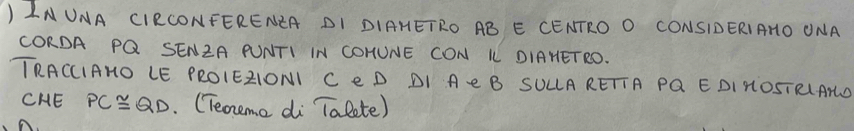 ) IN UNA CIRCONFERENZA DI DIAMETRO AB E CENTRO O CONSIDERIAMO UNA
CORDA PQ SENZA PUNTI IN COMUNE CON IL DIAMETRO.
TRACCIAMO LE PROIEZIONI C e D DI A e B SULLA RETTA PQ E DIMOSTRIAMO
CHE PC≅QD. (Teorema di Talete)